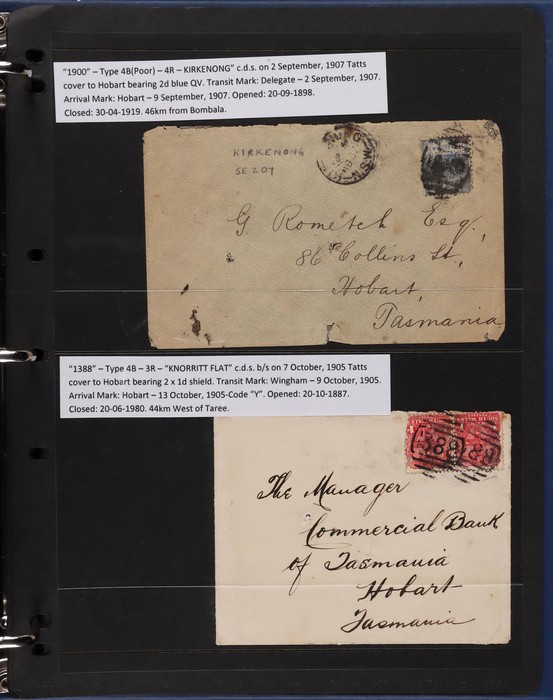 "1900" – Type 4B(Poor) – 4R – KIRKENONG" c.d.s. on 2 September, 1907 Tatts
cover to Hobart bearing 2d blue QV. Transit Mark: Delegate – 2 September, 1907.
Arrival Mark: Hobart – 9 September, 1907. Opened: 20-09-1898.
Closed: 30-04-1919. 46km from Bombala.
KIRKENONG
SE 2 07
N.S.W
G Rometch Esq.,
86 Collins St.,
Hobart,
Tasmania
"1388" – Type 4B – 3R – "KNORRITT FLAT" c.d.s. b/s on 7 October, 1905 Tatts
cover to Hobart bearing 2 x 1d shield. Transit Mark: Wingham – 9 October, 1905.
Arrival Mark: Hobart – 13 October, 1905-Code "Y". Opened: 20-10-1887.
Closed: 20-06-1980. 44km West of Taree.
1388
The Manager
Commercial Bank
of Tasmania
Hobart
Tasmania